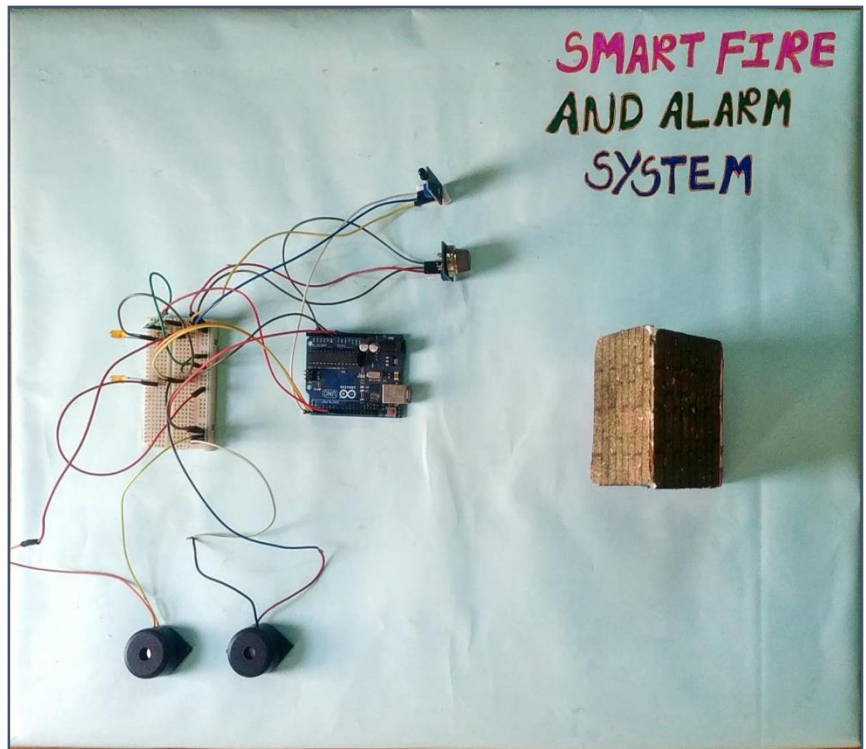 SMART FIRE
AND ALARM
SYSTEM
UNO